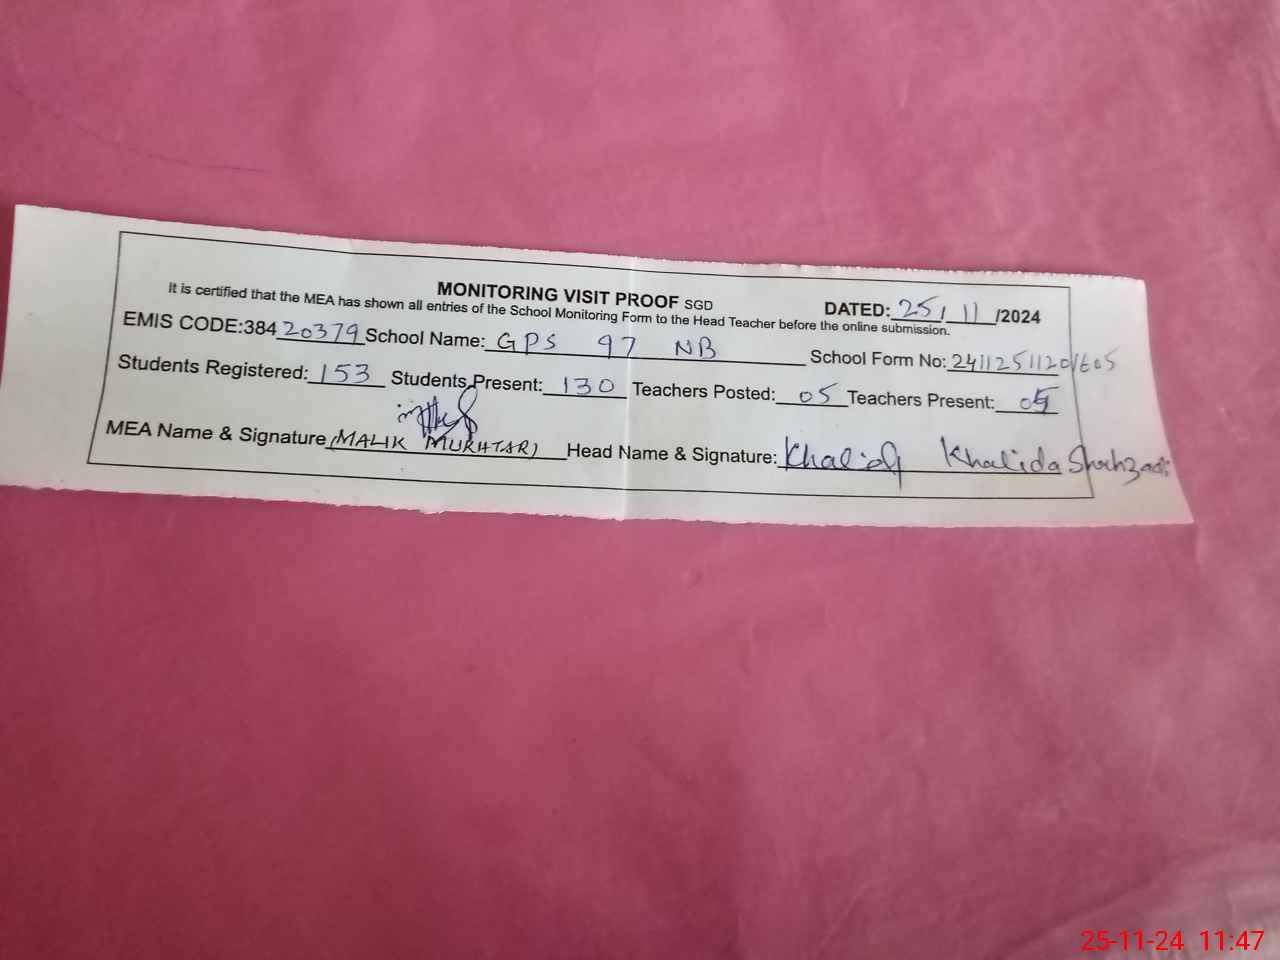 MONITORING VISIT PROOF SGD DATED: 25/11/2024
It is certified that the MEA has shown all entries of the School Monitoring Form to the Head Teacher before the online submission.
EMIS CODE:38420379 School Name: GPS 97 NB School Form No: 241125112
Students Registered: 153 Students Present: 130 Teachers Posted: 05 Teachers Present: 05
MEA Name & Signature (MALIK MUKHTAR) Head Name & Signature: Khalid Khalida Shahzadi
25-11-24 11:47